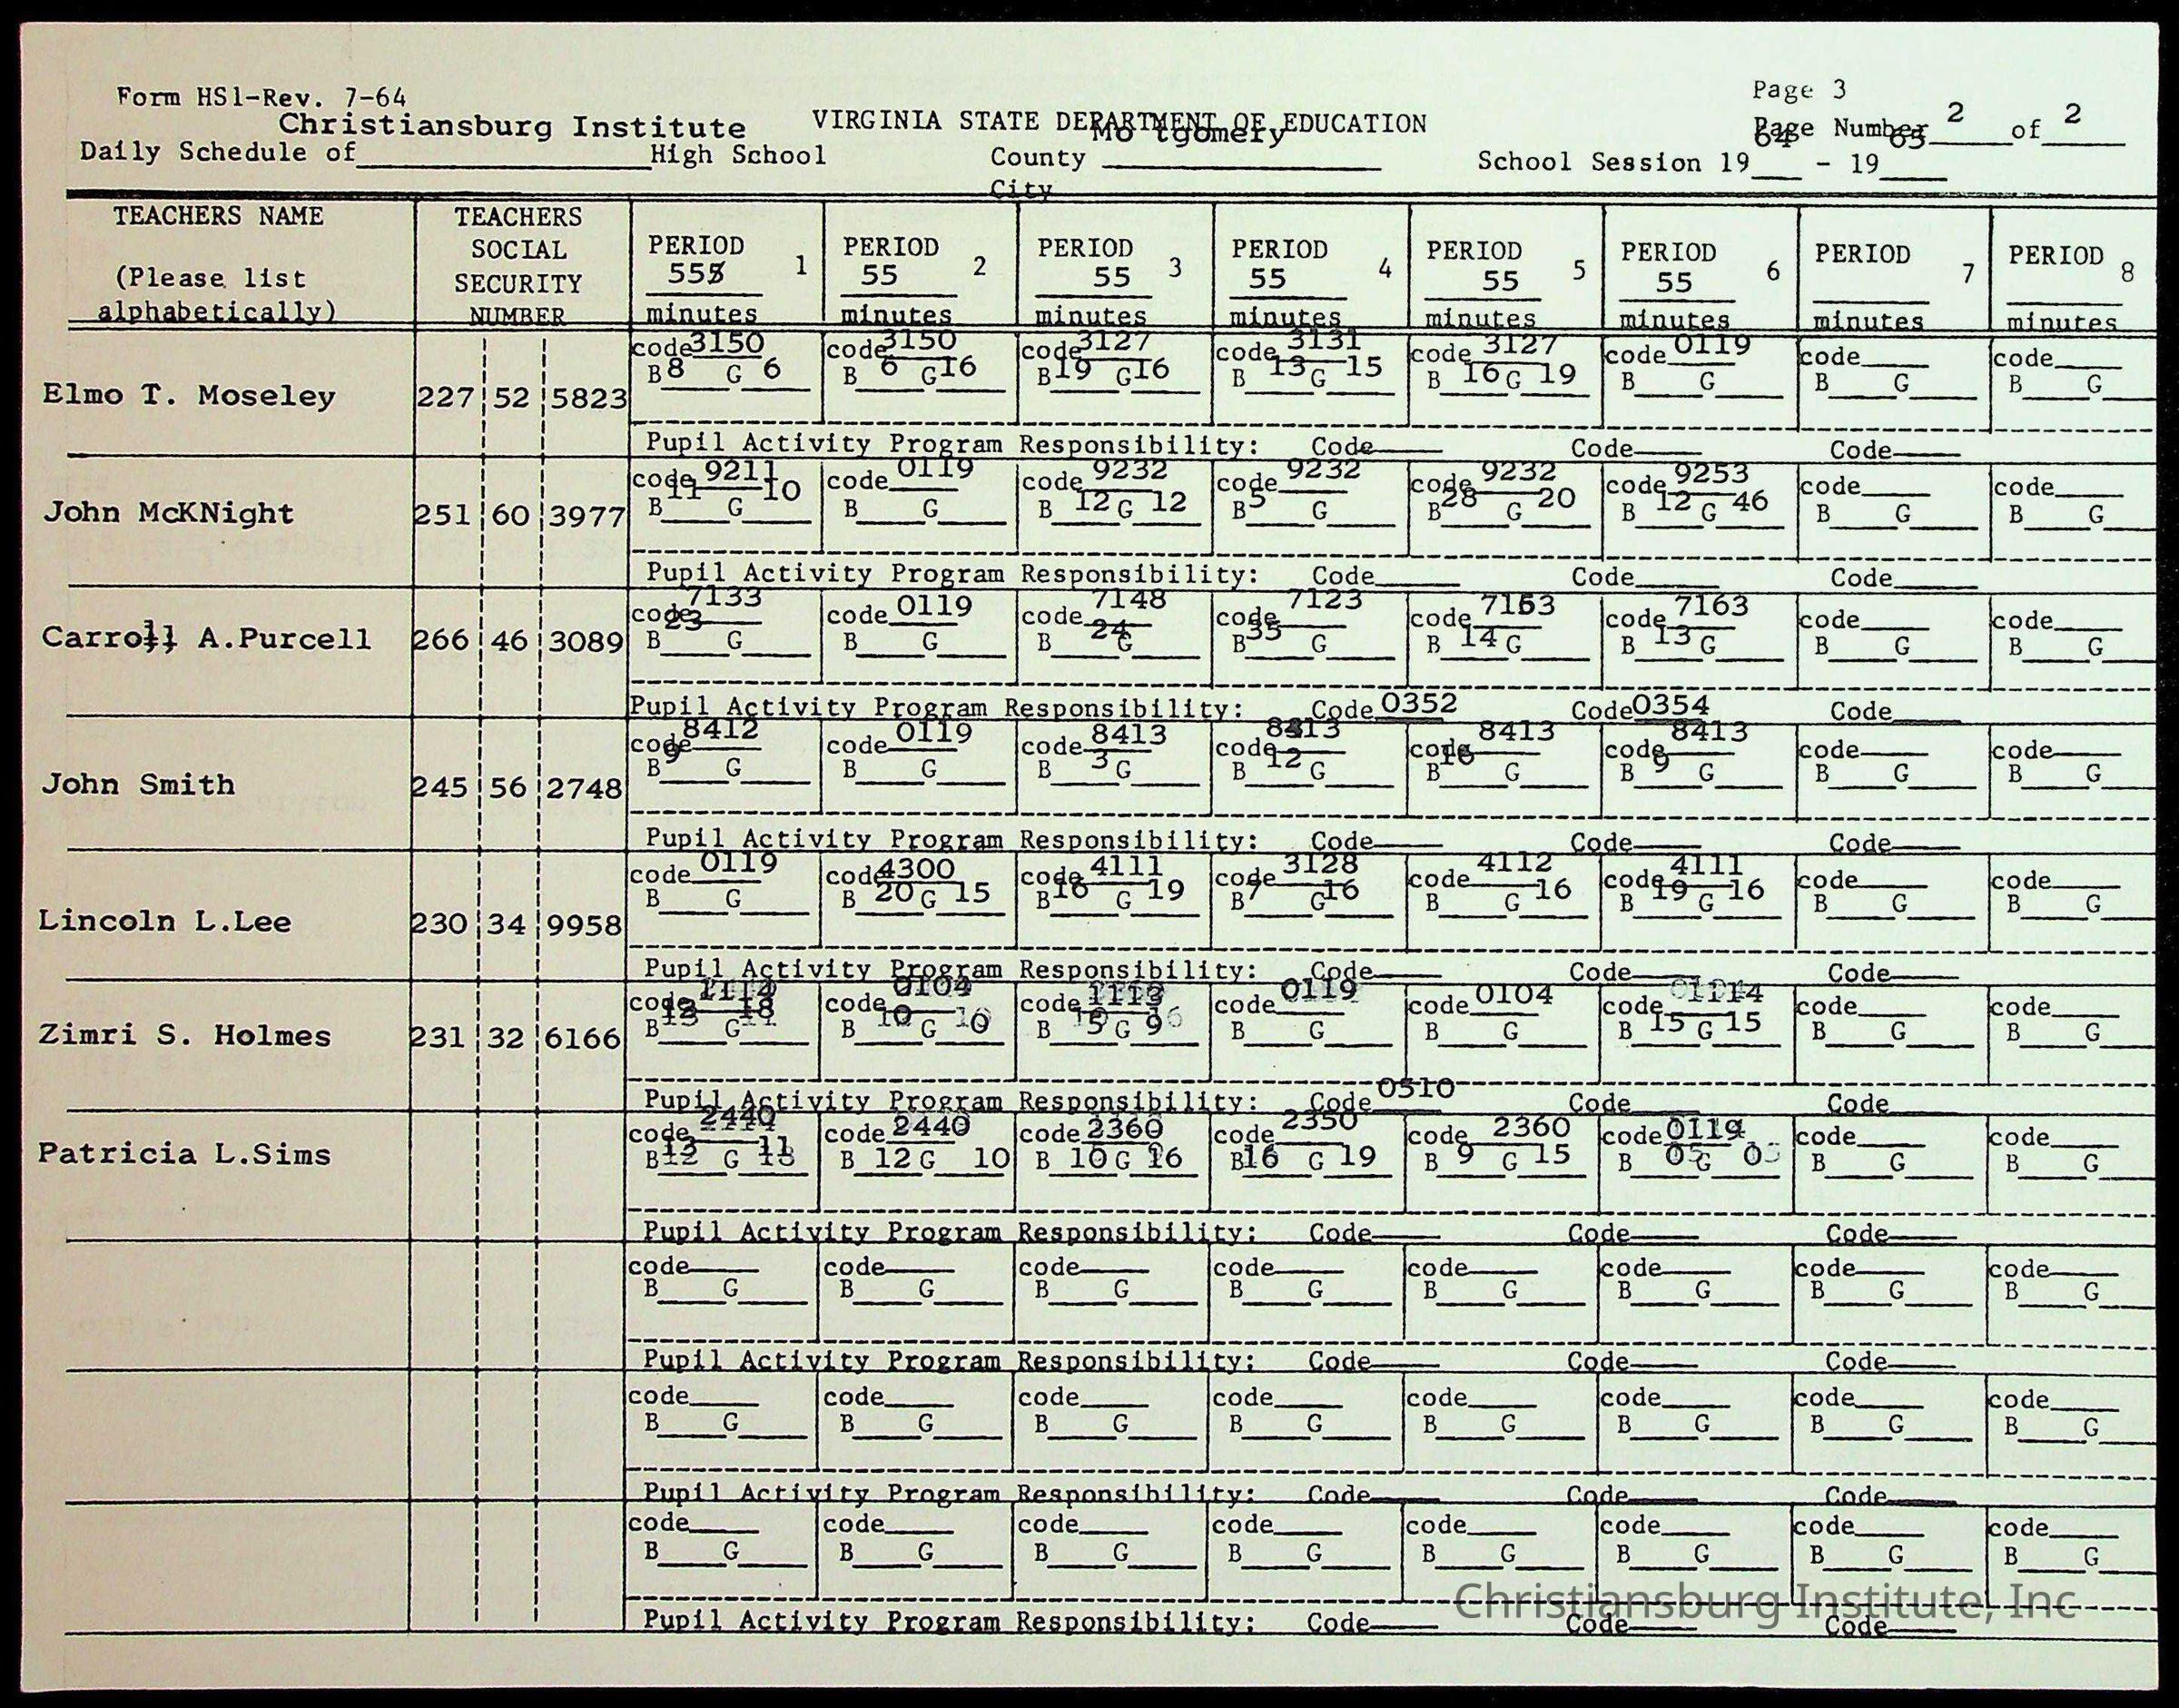 Form HS1-Rev. 7-64
Page 3
Christiansburg Institute VIRGINIA STATE DEPARTMENT OF EDUCATION Mo tgomery
Page Number 2 of 2
Daily Schedule of High School County School Session 19 64 - 19 65
City
TEACHERS NAME (Please list alphabetically)
TEACHERS SOCIAL SECURITY NUMBER
PERIOD 1 55 minutes
PERIOD 2 55 minutes
PERIOD 3 55 minutes
PERIOD 4 55 minutes
PERIOD 5 55 minutes
PERIOD 6 55 minutes
PERIOD 7 minutes
PERIOD 8 minutes
Elmo T. Moseley 227 52 5823
code 3150 code 3150 code 3127 code 3131 code 3127 code 0119 code code
B 8 G 6 B 6 G 16 B 19 G 16 B 13 G 15 B 16 G 19 B G B G B G
Pupil Activity Program Responsibility: Code Code Code
John McKNight 251 60 3977
code 9211 code 0119 code 9232 code 9232 code 9232 code 9253 code code
B 11 G 10 B G B 12 G 12 B 5 G B 28 G 20 B 12 G 46 B G B G
Pupil Activity Program Responsibility: Code Code Code
Carroll A.Purcell 266 46 3089
code 7133 code 0119 code 7148 code 7123 code 7163 code 7163 code code
B 23 G B G B 24 G B 35 G B 14 G B 13 G B G B G
Pupil Activity Program Responsibility: Code 0352 Code 0354 Code
John Smith 245 56 2748
code 8412 code 0119 code 8413 code 8413 code 8413 code 8413 code code
B 9 G B G B 3 G B 12 G B 16 G B 9 G B G B G
Pupil Activity Program Responsibility: Code Code Code
Lincoln L.Lee 230 34 9958
code 0119 code 4300 code 4111 code 3128 code 4112 code 4111 code code
B G B 20 G 15 B 16 G 19 B 7 G 16 B G 16 B 19 G 16 B G B G
Pupil Activity Program Responsibility: Code Code Code
Zimri S. Holmes 231 32 6166
code 1114 code 0104 code 1113 code 0119 code 0104 code 1114 code code
B G B 10 G B 5 G 9 B G B G B 15 G 15 B G B G
Pupil Activity Program Responsibility: Code 0510 Code Code
Patricia L.Sims
code 2440 code 2440 code 2360 code 2350 code 2360 code 0119 code code
B G B 12 G 10 B 10 G 16 B 16 G 19 B 9 G 15 B G B G B G
Pupil Activity Program Responsibility: Code Code Code
code code code code code code code code
B G B G B G B G B G B G B G B G
Pupil Activity Program Responsibility: Code Code Code
code code code code code code code code
B G B G B G B G B G B G B G B G
Pupil Activity Program Responsibility: Code Code Code
code code code code code code code code
B G B G B G B G B G B G B G B G
Christiansburg Institute, Inc
Pupil Activity Program Responsibility: Code Code Code